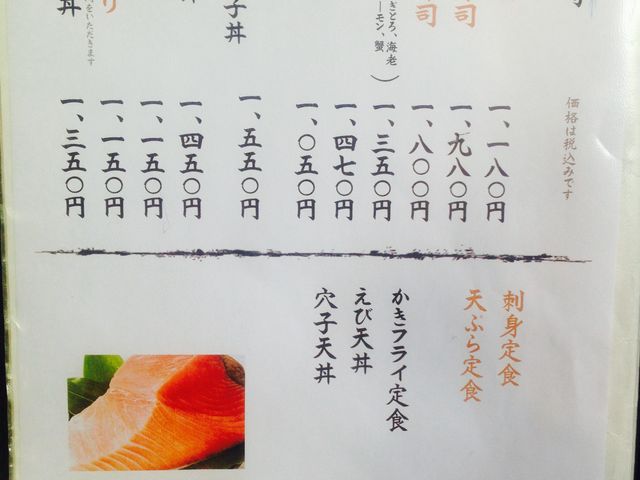 価格は税込みです
一、一八〇円
司
一、九八〇円
司
一、八〇〇円
ぎとろ、海老
ーモン、蟹）
一、三五〇円
一、四七〇円
一、〇五〇円
子丼
一、五五〇円
一、四五〇円
一、一五〇円
り
一、一五〇円
をいただきます
丼
一、三五〇円
刺身定食
天ぷら定食
かきフライ定食
えび天丼
穴子天丼